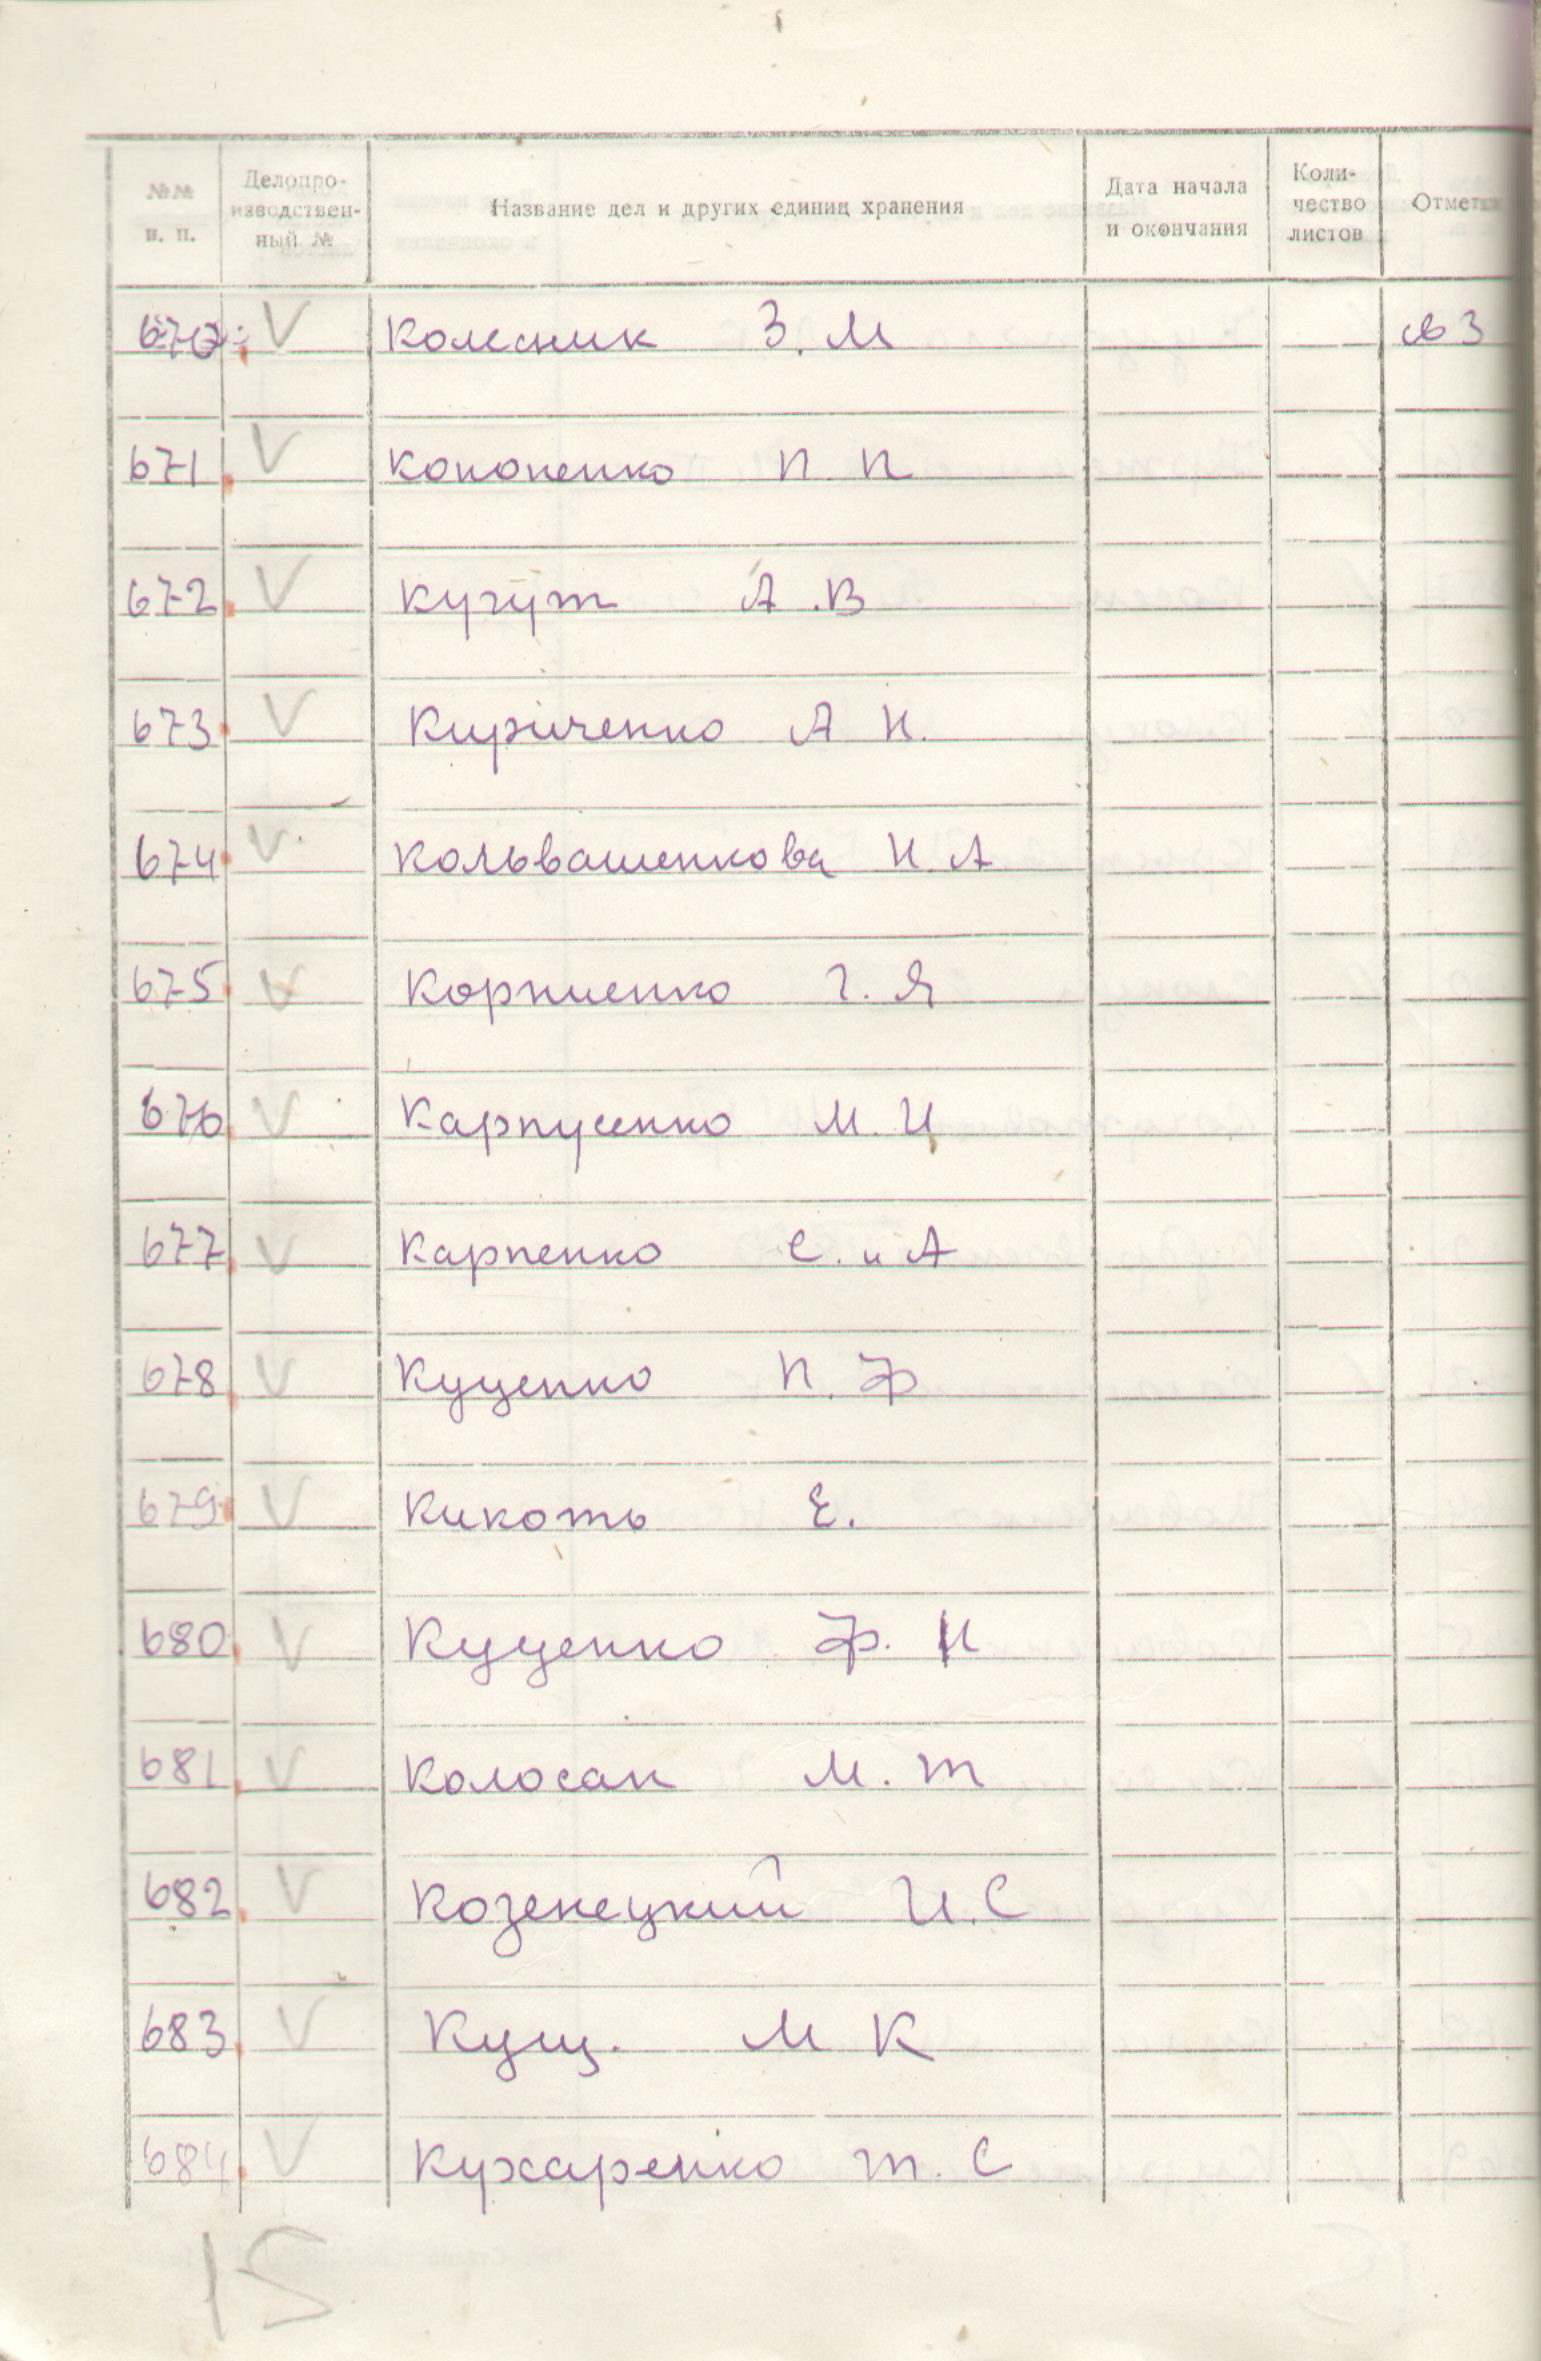 №№ п. п. Делопро-изводствен-ный № Название дел и других единиц хранения Дата начала и окончания Коли-чество листов Отметк
670 V Колесник З. М св 3
671 V Кононенко П П
672 V Кугут А. В
673 V Кириченко А Н.
674 V Кольвашенкова Н А
675 V Корниенко Г. Я
676 V Карпусенко М. И
677 V Карпенко С. и А
678 V Куценко П. Ф
679 V Кикоть Е.
680 V Куценко Ф. И
681 V Колосан М. Т
682 V Козенецкий И. С
683 V Кущ. М К
684 V Кухаренко Т. С
15